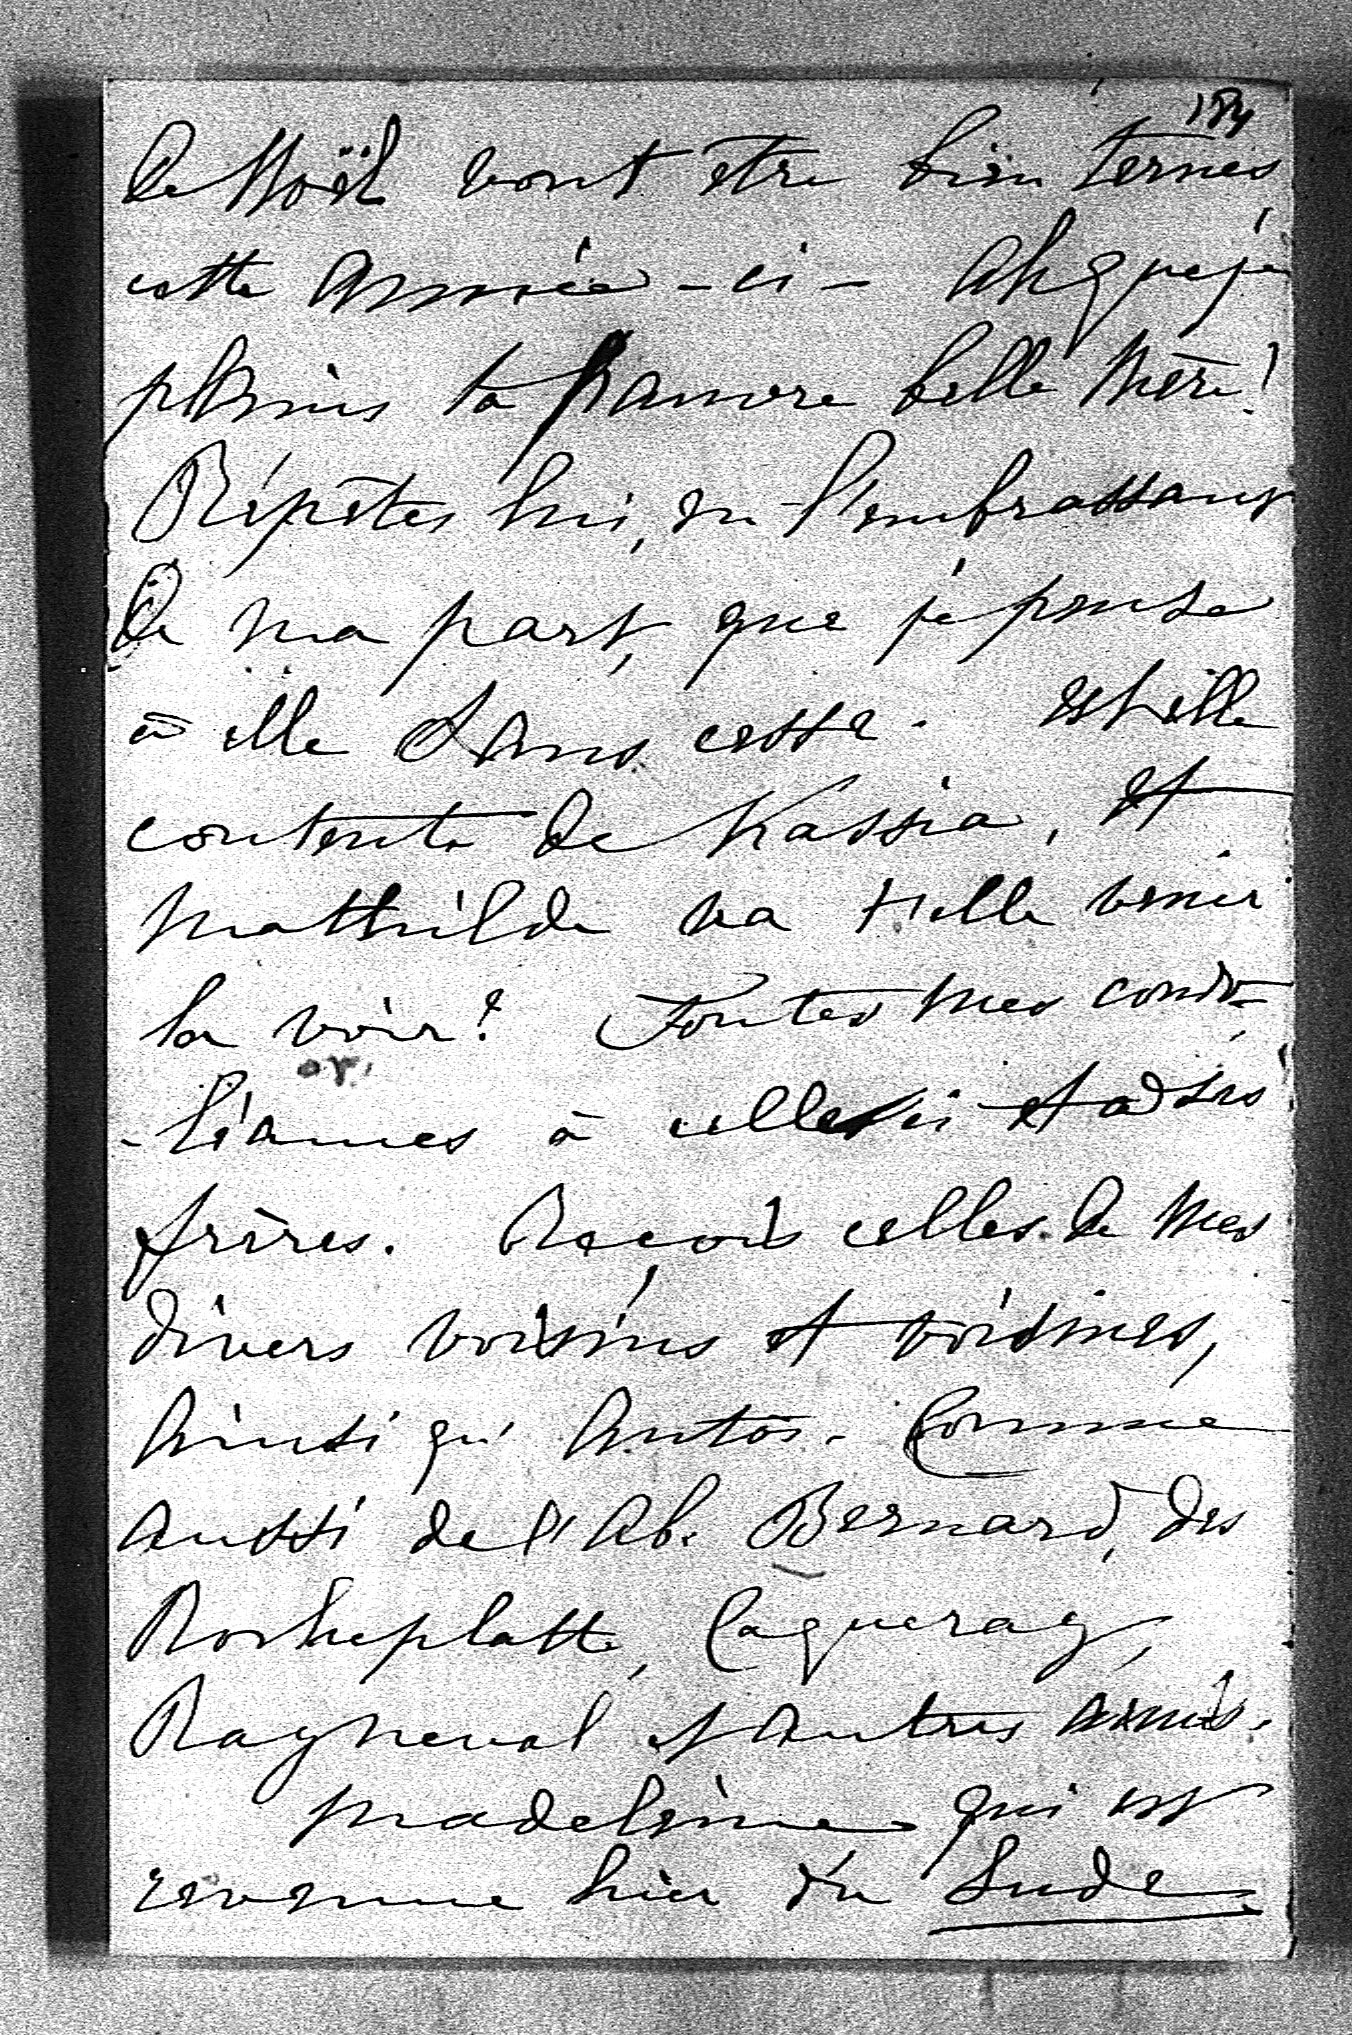 de Noël vont être bien ternes
cette année-ci - Ah que je
plains ta pauvre belle mère!
Répètes lui, en l'embrassant
de ma part, que je pense
à elle sans cesse. Est elle
contente de Kassia, et
Mathilde va t'elle venir
la voir? Toutes mes condo-
-léances à celle ci et à ses
frères. Reçois celles de mes
divers voisins et voisines,
Ainsi qu' Antos. Comme
aussi de l'Ab. Bernard, des
Rocheplatte, Caqueray,
Rayneval et autres amis.
Madeleine qui est
revenue hier du Lude